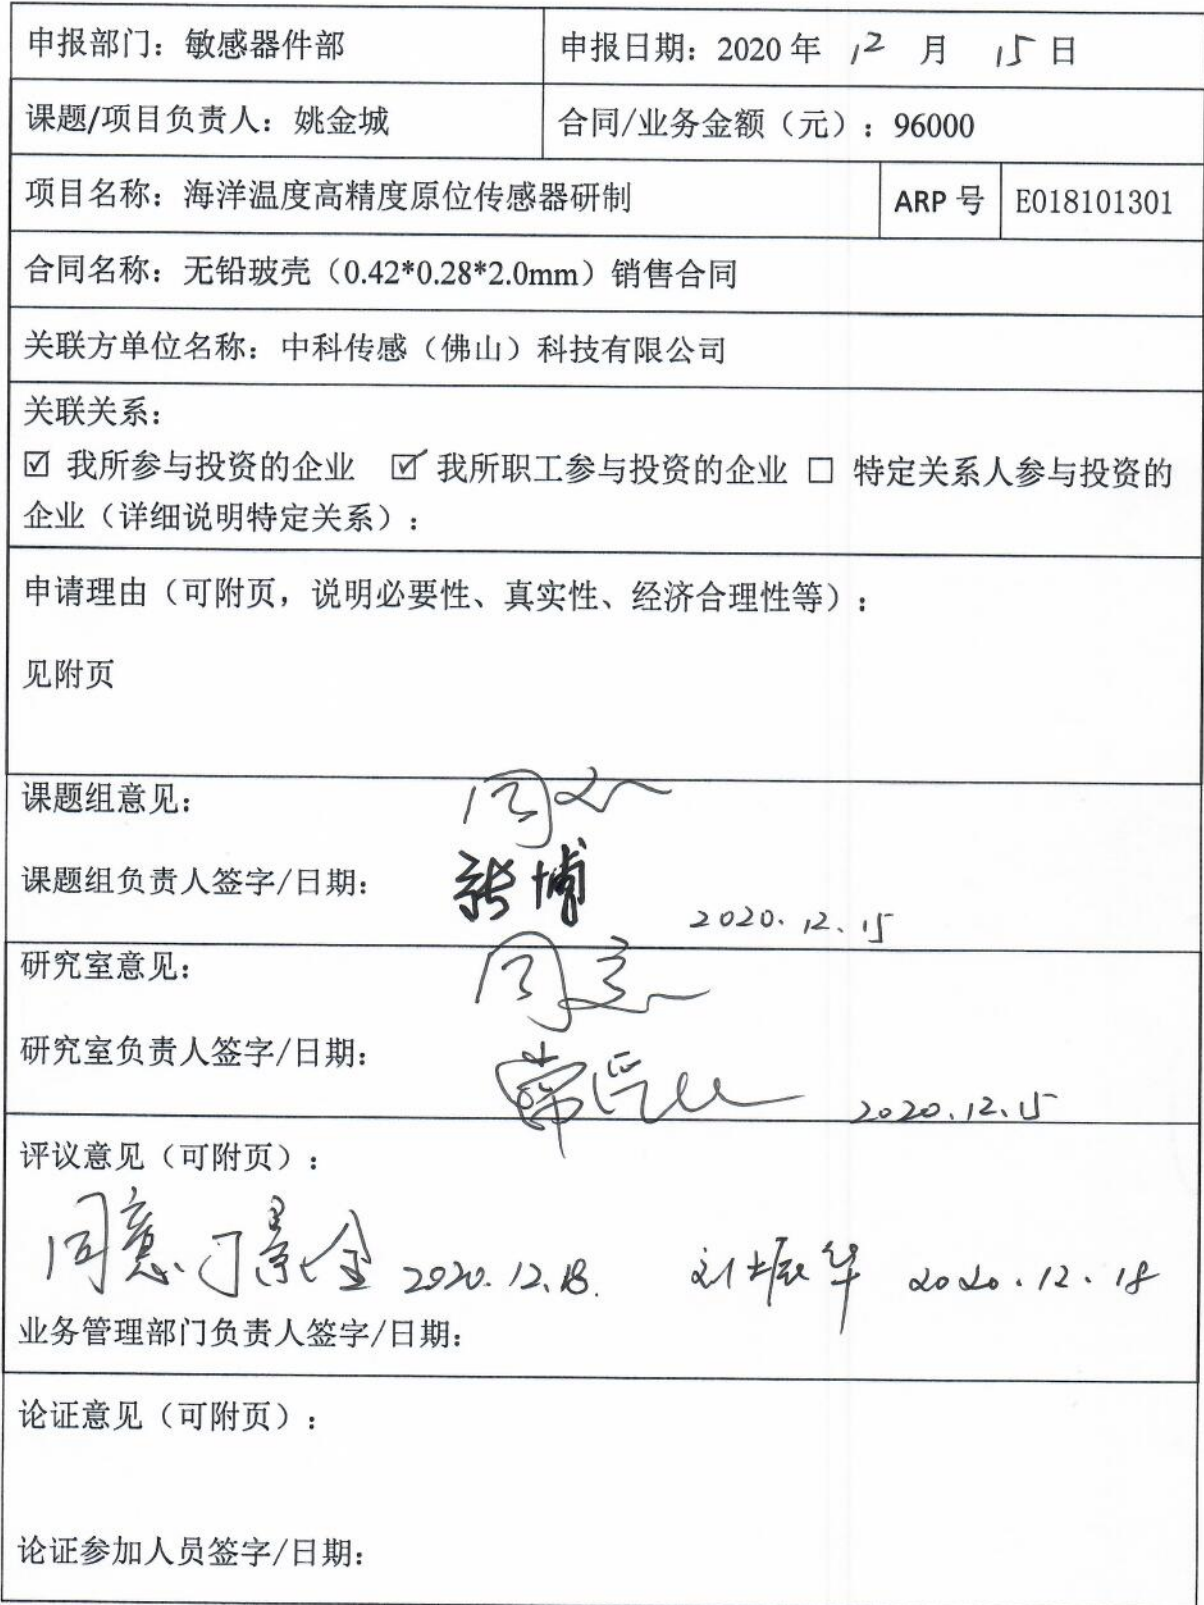 申报部门：敏感器件部 申报日期：2020 年 12 月 15 日
课题/项目负责人：姚金城 合同/业务金额（元）：96000
项目名称：海洋温度高精度原位传感器研制 ARP 号 E018101301
合同名称：无铅玻壳（0.42*0.28*2.0mm）销售合同
关联方单位名称：中科传感（佛山）科技有限公司
关联关系：
☑ 我所参与投资的企业 ☑ 我所职工参与投资的企业 □ 特定关系人参与投资的
企业（详细说明特定关系）：
申请理由（可附页，说明必要性、真实性、经济合理性等）：
见附页
课题组意见： 同意
课题组负责人签字/日期： 张博 2020.12.15
研究室意见： 同意
研究室负责人签字/日期： 2020.12.15
评议意见（可附页）：
同意 丁景全 2020.12.18. 刘振华 2020.12.18
业务管理部门负责人签字/日期：
论证意见（可附页）：
论证参加人员签字/日期：